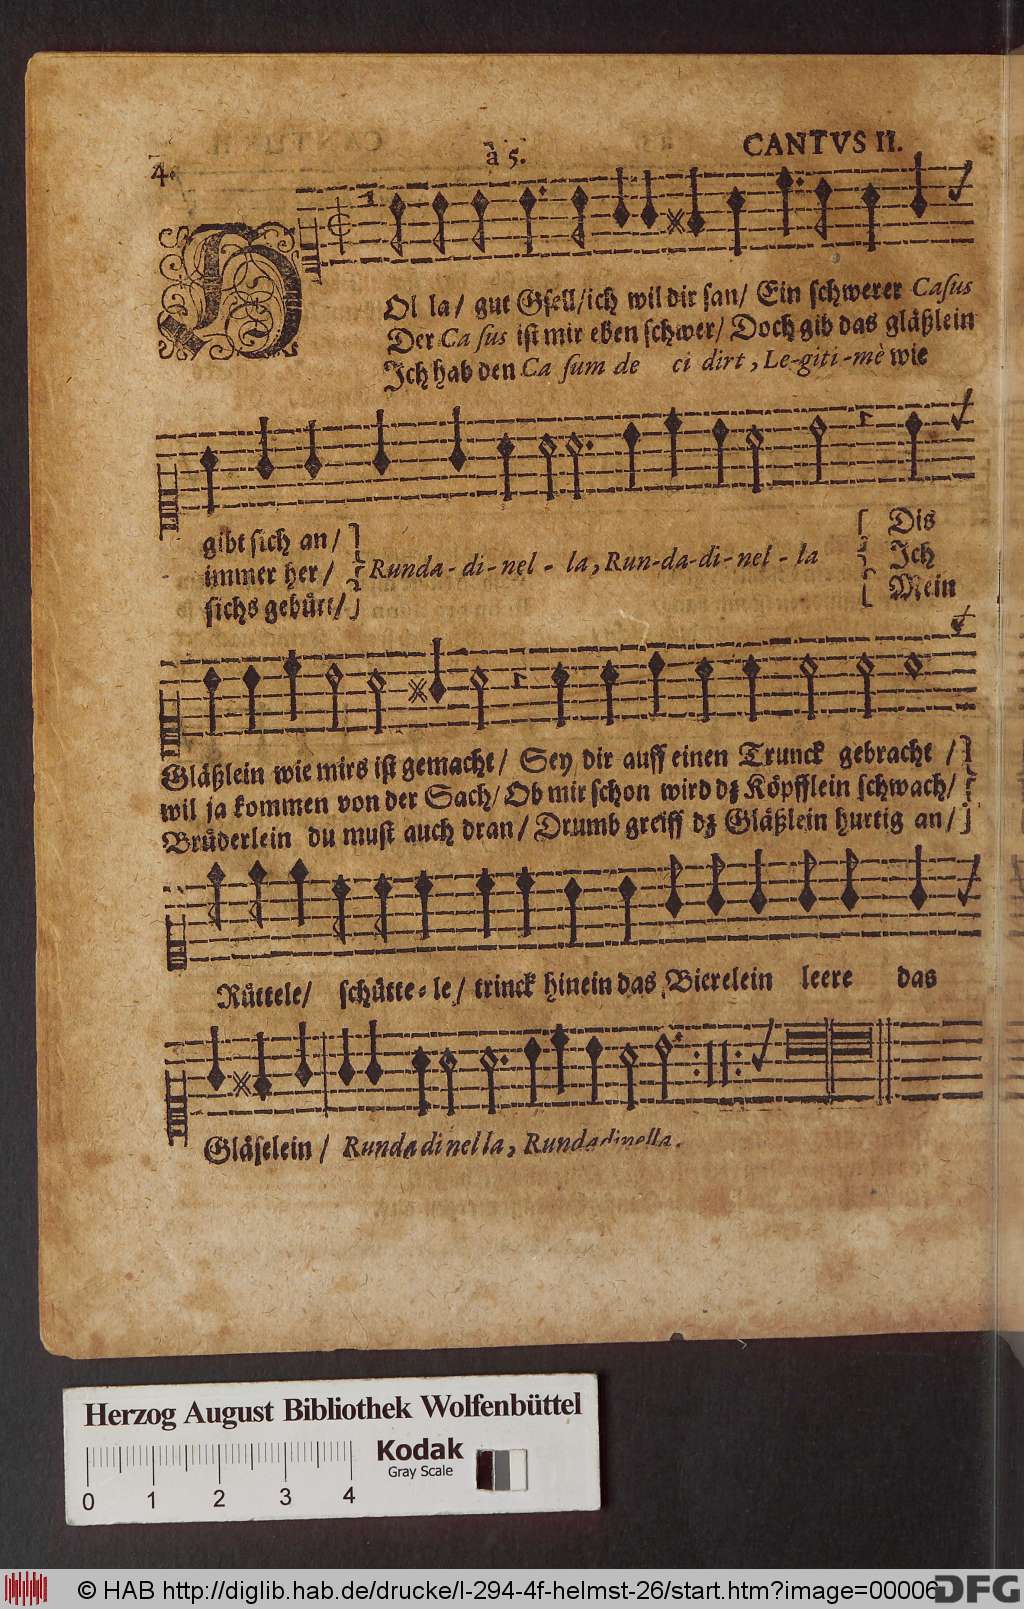 4.
à 5.
CANTVS II.
HOl la/ gut Gsell/ich wil dir san/ Ein schwerer Casus
Der Ca sus ist mir eben schwer/ Doch gib das gläßlein
Ich hab den Ca sum de ci dirt, Le-giti-mè wie
gibt sich an/
immer her/
sichs gebütt/
Runda-di-nel-la, Run-da-di-nel-la
Dis
Ich
Mein
Gläßlein wie mirs ist gemacht/ Sey dir auff einen Trunck gebracht /
wil ja kommen von der Sach/ Ob mir schon wird dz Köpfflein schwach/
Brüderlein du must auch dran/ Drumb greiff dz Gläßlein hurtig an/
Rüttele/ schütte-le/ trinck hinein das Bierelein leere das
Gläselein / Rundadinella, Rundadinella.
Herzog August Bibliothek Wolfenbüttel
Kodak
Gray Scale
0 1 2 3 4
© HAB http://diglib.hab.de/drucke/l-294-4f-helmst-26/start.htm?image=00006
DFG